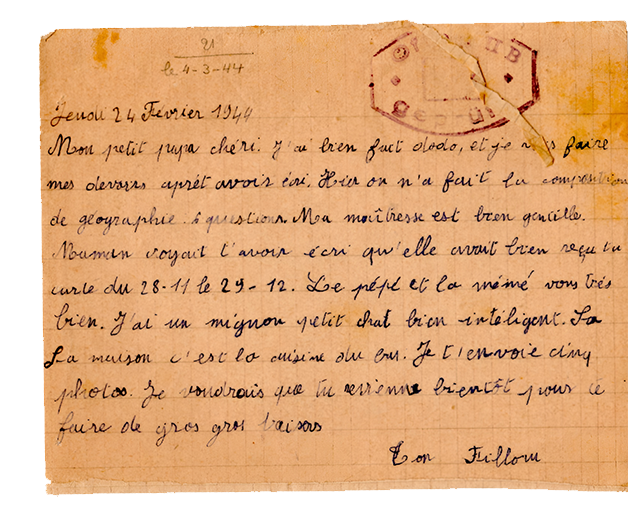 21
le 4-3-44
Jeudi 24 Fevrier 1944
Mon petit papa chéri. J'ai bien fait dodo, et je vais faire
mes devoirs aprêt avoir écri. Hier on n'a fait la composition
de géographie. 6 questions. Ma maîtresse est bien gentille.
Maman croyait t'avoir écri qu'elle avait bien reçu ta
carte du 28-11 le 29-12. Le pépé et la mémé vons trés
bien. J'ai un mignon petit chat bien inteligent. Sa
Sa maison c'est la cuisine du
photos. Je voudrais que tu revienne bientôt pour te
faire de gros gros baisers
Ton Fillou